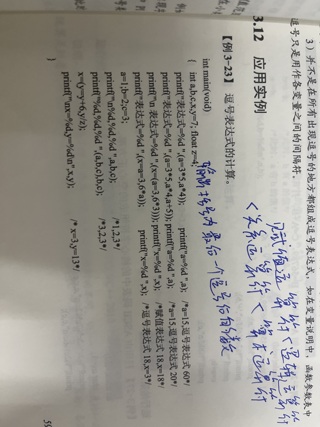 3）并不是在所有出现逗号的地方都组成逗号表达式，如在变量说明中，函数参数表中
逗号只是用作各变量之间的间隔符。
3.12 应用实例
【例 3-23】 逗号表达式的计算。
赋值运算符<逻辑运算符
<关系运算符<算术运算符
int main(void)
{ int a,b,c,x,y=7; float z=4;
printf("表达式=%d ",(a=3*5,a*4)); printf("a=%d ",a); /*a=15,逗号表达式 60*/
printf("表达式=%d ",(a=3*5,a*4,a+5)); printf("a=%d ",a); /*a=15,逗号表达式 20*/
printf("\n 表达式=%d ",(x=(a=3,6*3))); printf("x=%d ",x); /*赋值表达式 18,x=18*/
printf("表达式=%d ",(x=a=3,6*a)); printf("x=%d ",x); /*逗号表达式 18,x=3*/
a=1;b=2;c=3;
printf("\n%d,%d,%d ",a,b,c); /*1,2,3*/
printf("%d,%d,%d ",(a,b,c),b,c); /*3,2,3*/
x=(y=y+6,y/z);
printf("\nx=%d,y=%d\n",x,y); /* x=3,y=13*/
}